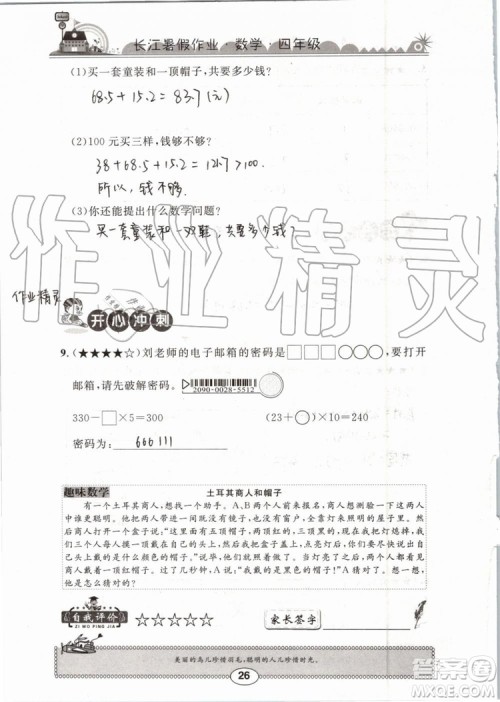 长江暑假作业·数学·四年级
(1)买一套童装和一顶帽子,共要多少钱?
68.5+15.2=83.7(元)
(2)100元买三样,钱够不够?
38+68.5+15.2=121.7>100.
所以,钱不够.
(3)你还能提出什么数学问题?
买一套童装和一双鞋,共要多少钱?
作业精灵
作业精灵
开心冲刺
9.(★★★★☆)刘老师的电子邮箱的密码是□□□○○○,要打开
邮箱,请先破解密码。
2090-0028-5512
330-□×5=300 (23+○)×10=240
密码为: 666111
趣味数学
土耳其商人和帽子
有一个土耳其商人,想找一个助手。A、B两个人前来报名,商人想测验一下两个人
中谁更聪明。他把两个人带进一间没有镜子,也没有窗户、全靠灯来照明的屋子里。商
人打开一个盒子说:“这里面有五顶帽子,两顶红的,三顶黑的,现在我把灯熄掉,我们
三个人每人摸一顶戴在自己头上。我把盒子盖上,点亮灯后,你们要尽快地说出自
己头上戴的是什么颜色的帽子?”说毕,他们就照着做了。当灯亮了之后,A、B两人看
到商人戴着一顶红帽子。过了几秒钟,A说:“我戴的是黑色的帽子!”A猜对了。他是
怎么知道的?
自我评价
ZI WO PING JIA
☆☆☆☆☆
家长签字
美丽的鸟儿珍惜羽毛,聪明的人儿珍惜时光。
26
作业精灵